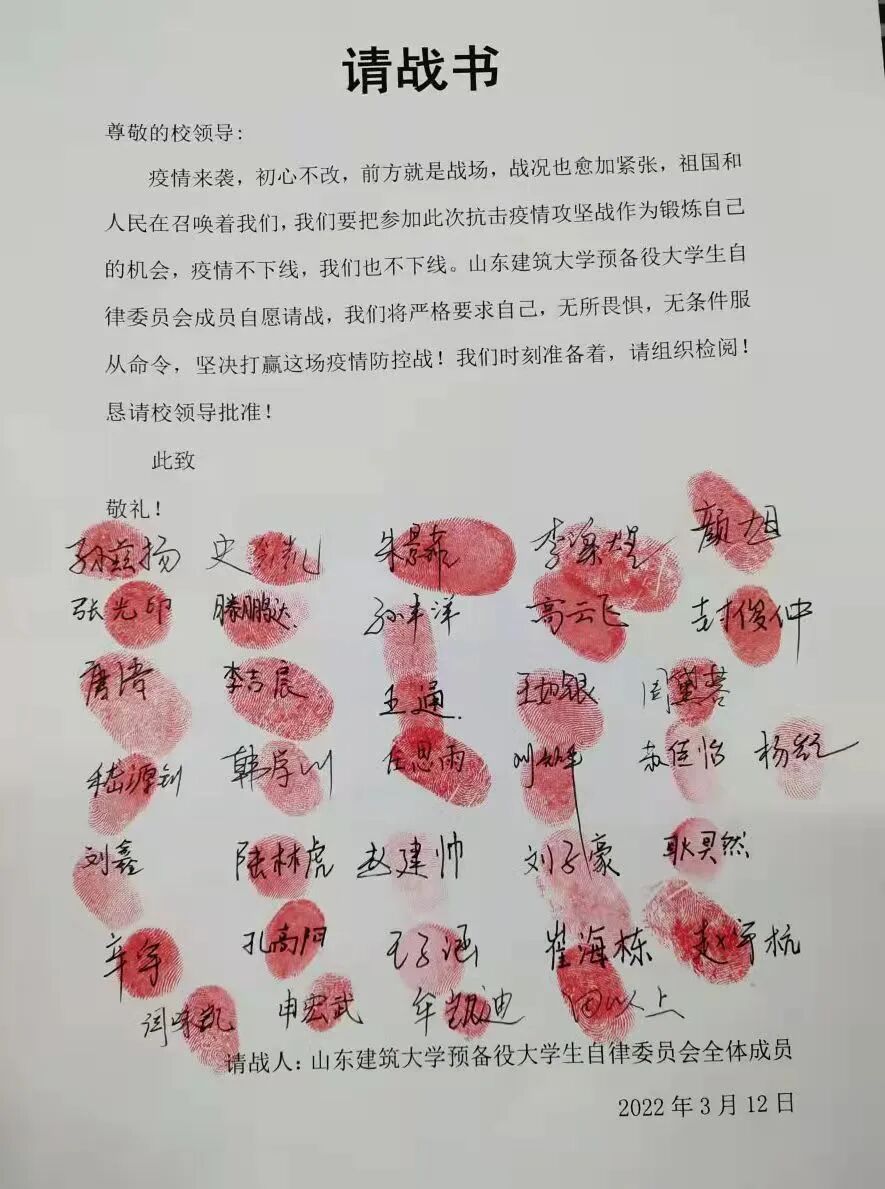 请战书
尊敬的校领导:
疫情来袭，初心不改，前方就是战场，战况也愈加紧张，祖国和
人民在召唤着我们，我们要把参加此次抗击疫情攻坚战作为锻炼自己
的机会，疫情不下线，我们也不下线。山东建筑大学预备役大学生自
律委员会成员自愿请战，我们将严格要求自己，无所畏惧，无条件服
从命令，坚决打赢这场疫情防控战！我们时刻准备着，请组织检阅！
恳请校领导批准！
此致
敬礼！
孙兹扬 朱景 颜旭
张光印 滕鹏达 孙丰洋 高云飞 封俊仲
唐涛 李吉辰 王通 王如银
嵇源钊 韩学川 任思雨 苏佳怡
刘鑫 陆林虎 赵建帅 刘子豪 耿昊然
辛宇 孔高阳 王子涵 崔海栋 赵宇杭
申宏武 牟凯迪
请战人：山东建筑大学预备役大学生自律委员会全体成员
2022年3月12日